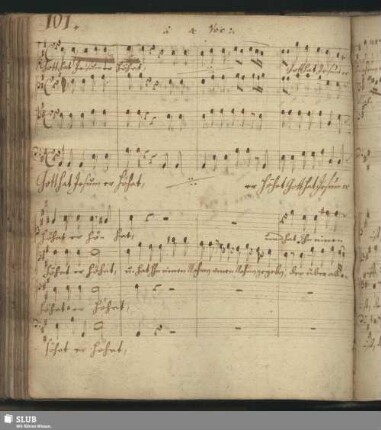 101.
à 4 Voc:
Gott hat Jesum erhöhet, Gott hat Jesum er
Gott hat Jesum erhöhet, er höhet Gott hat Jesum er
höhet erhöhet, und hat ihm einen
höhet erhöhet, und hat ihm einen Nahmen einen Nahmen gegeben, der über alle
höhet erhöhet,
höhet erhöhet,
SLUB
Wir führen Wissen.